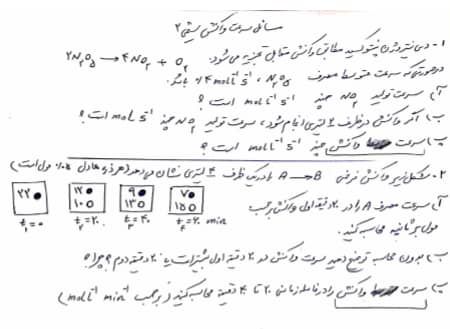 مسائل سرعت واکنش سینتیک ۲
۱- دی نیتروژن پنتوکسید مطابق واکنش مقابل تجزیه می‌شود. 2N₂O₅ → 4NO₂ + O₂
درصورتی که سرعت متوسط مصرف N₂O₅، mol L⁻¹ s⁻¹ باشد.
آ) سرعت تولید NO₂ چند mol L⁻¹ s⁻¹ است؟
ب) اگر واکنش در ظرف ۴ لیتری انجام شود، سرعت تولید NO₂ چند mol s⁻¹ است؟
پ) سرعت واکنش چند mol L⁻¹ s⁻¹ است؟
۲- شکل زیر واکنش فرضی A → B را در یک ظرف ۴ لیتری نشان می‌دهد (هر ذره معادل مول است)
آ) سرعت مصرف A را در ۲۰ دقیقه اول واکنش برحسب
مول بر ثانیه محاسبه کنید.
۲۲● ۱۲● ۱۰○ ۹● ۱۳○ ۷● ۱۵○
t₁=۰ t₂=۲۰ t₃=۴۰ t₄=۶۰ min
ب) بدون محاسبه توضیح دهید سرعت واکنش در ۲۰ دقیقه اول بیشتر است یا ۲۰ دقیقه دوم؟ چرا؟
پ) سرعت واکنش را در فاصله زمانی ۲۰ تا ۴۰ دقیقه محاسبه کنید (برحسب mol L⁻¹ min⁻¹)